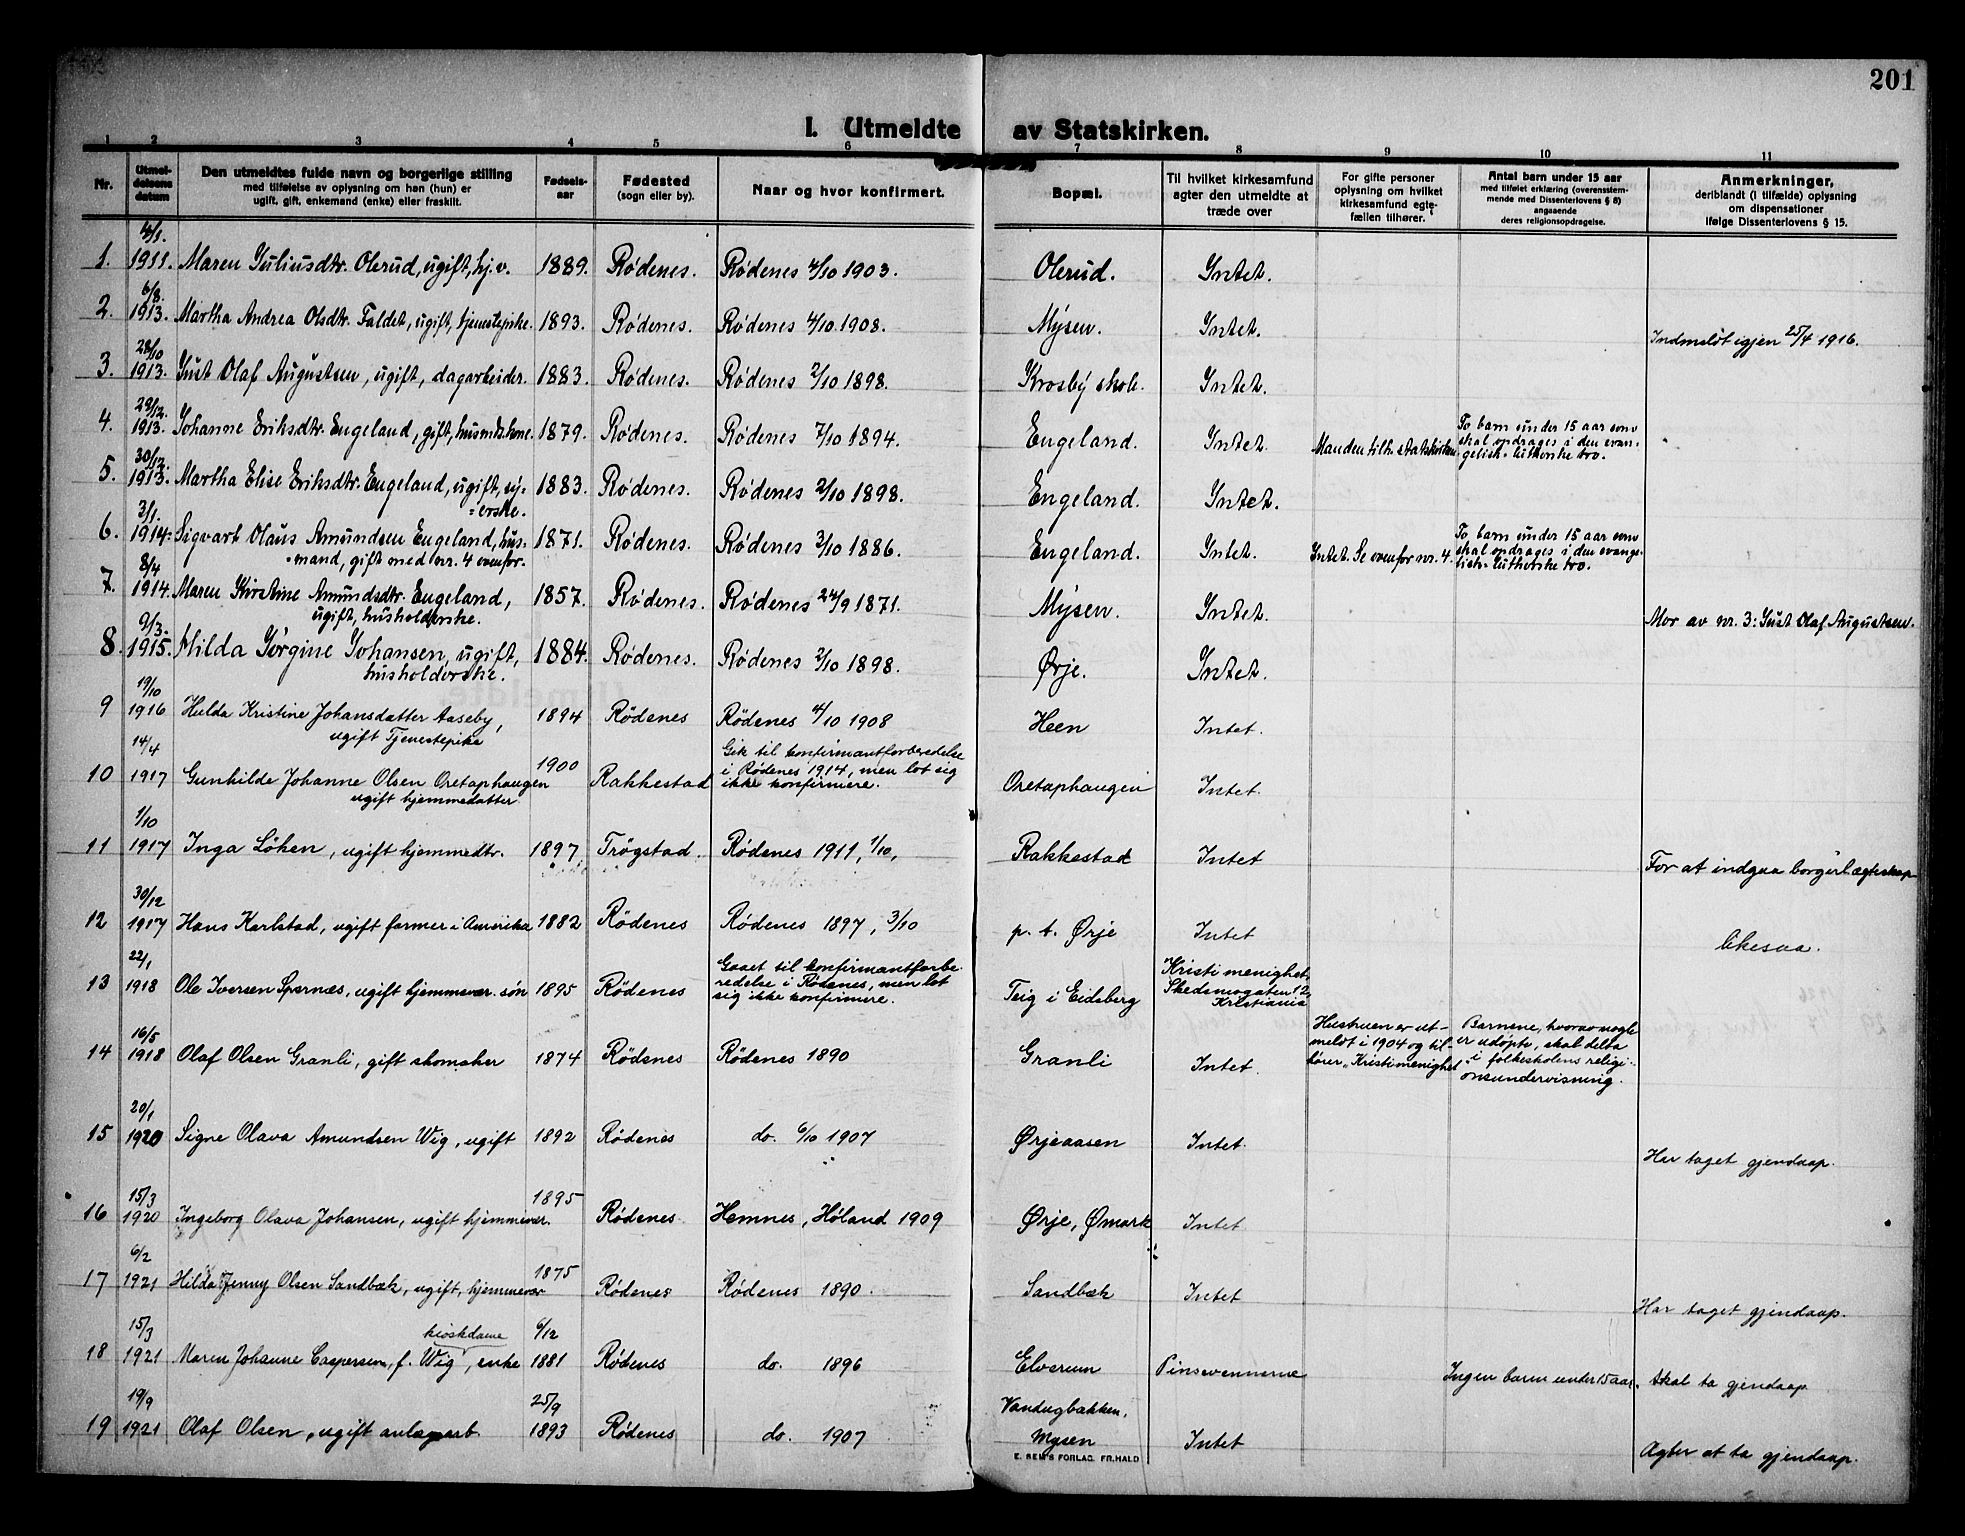 201
I. Utmeldte av Statskirken.
1 2 3 4 5 6 7 8 9 10 11
Nr.
Utmel-
delsens
datum
Den utmeldtes fulde navn og borgerlige stilling
med tilføielse av oplysning om han (hun) er
ugift, gift, enkemand (enke) eller fraskilt.
Fødsels-
aar
Fødested
(sogn eller by).
Naar og hvor konfirmert.
Bopæl.
Til hvilket kirkesamfund
agter den utmeldte at
træde over
For gifte personer
oplysning om hvilket
kirkesamfund egte-
fællen tilhører.
Antal barn under 15 aar
med tilføiet erklæring (overensstem-
mende med Dissenterlovens § 8)
angaaende
deres religionsopdragelse.
Anmerkninger,
deriblandt (i tilfælde) oplysning
om dispensationer
ifølge Dissenterlovens § 15.
1. 1911. Maren Juliusdtr. Olerud, ugift, hj.v. 1889. Rødenes. Rødenes 4/10 1903. Olerud. Intet.
6/8.
2. 1913. Martha Andrea Olsdtr. Faldet, ugift, tjenestepike. 1893. Rødenes. Rødenes 4/10 1908. Mysen. Intet. Indmeldt igjen 25/4 1916.
28/10
3. 1913. Just Olaf Augustsen, ugift, dagarbeider. 1883. Rødenes. Rødenes 2/10 1898. Krosby skole. Intet.
29/12.
4. 1913. Johanne Eriksdtr. Engeland, gift, husmdskone. 1879. Rødenes. Rødenes 7/10 1894. Engeland. Intet. Manden tilh. statskirken.
To barn under 15 aar som
skal opdrages i den evan-
gelisk-lutherske tro.
30/12.
5. 1913. Martha Elise Eriksdtr. Engeland, ugift, sy- 1883. Rødenes. Rødenes 2/10 1898. Engeland. Intet.
erske.
3/1.
6. 1914. Sigvart Olaus Amundsen Engeland, hus- 1871. Rødenes. Rødenes 3/10 1886. Engeland. Intet. Intet. Se ovenfor nr. 4.
mand, gift med nr. 4 ovenfor.
To barn under 15 aar som
skal opdrages i den evange-
lisk-lutherske tro.
8/4
7. 1914. Maren Kirstine Amundsdtr. Engeland, 1857. Rødenes. Rødenes 24/9 1871. Mysen. Intet. Mor av nr. 3: Just Olaf Augustsen.
ugift, husholderske.
9/3.
8. 1915. Hilda Jørgine Johansen, ugift, 1884. Rødenes. Rødenes 2/10 1898. Ørje. Intet.
husholderske.
19/10
9 1916 Hulda Kristine Johansdatter Aaseby, 1894 Rødenes Rødenes 4/10 1908 Heen Intet.
ugift Tjenestepike
14/4
10 1917 Gunhilde Johanne Olsen Oretaphaugen 1900 Rakkestad
ugift hjemmedatter
Gik til konfirmantforberedelse
i Rødenes 1914, men lot sig
ikke konfirmere.
Oretaphaugen Intet.
1/10
11 1917 Inga Løken, ugift hjemmedtr. 1897 Trøgstad. Rødenes 1911, 1/10, Rakkestad Intet For at indgaa borgerl. ægteskap
30/12
12 1917 Hans Karlstad, ugift farmer i Amerika 1882 Rødenes Rødenes 1897, 3/10 p. t. Ørje Intet likesaa.
22/1
13 1918 Ole Iversen Spernæs, ugift hjemmevær. søn 1895 Rødenes
Gaaet til konfirmantforbe-
redelse i Rødenes, men lot
sig ikke konfirmere.
Teig i Eidsberg
Kristi menighet,
Skedsmogaten 12,
Kristiania
16/5
14 1918 Olaf Olsen Granli, gift skomaker 1874 Rødenes Rødenes 1890 Granli Intet
Hustruen er ut-
meldt i 1904 og til-
hører "Kristi menighet
Barnene, hvorav nogle
er udøpte, skal delta
i folkeskolens religi-
onsundervisning.
20/1
15 1920 Signe Olava Amundsen Wig, ugift 1892 Rødenes do. 6/10 1907 Ørjeaasen Intet. Har taget gjendaap.
15/3
16 1920 Ingeborg Olava Johansen, ugift hjemmevær. 1895 Rødenes Hemnes, Høland 1909 Ørje, Ømark Intet
6/2
17 1921 Hilda Jenny Olsen Sandbæk, ugift, hjemmevær 1875 Rødenes Rødenes 1890. Sandbæk Intet Har taget gjendaap.
15/3 kioskdame 6/12
18 1921 Maren Johanne Caspersen, f. Wig, enke 1881 Rødenes do. 1896 Elverum Pinsevennerne Ingen barn under 15 aar. Skal ta gjendaap
19/9 25/9
19 1921 Olaf Olsen, ugift anlægsarb. 1893 Rødenes do. 1907 Vandugbakken,
Mysen Intet Agter at ta gjendaap.
E. SEM'S FORLAG. FR.HALD